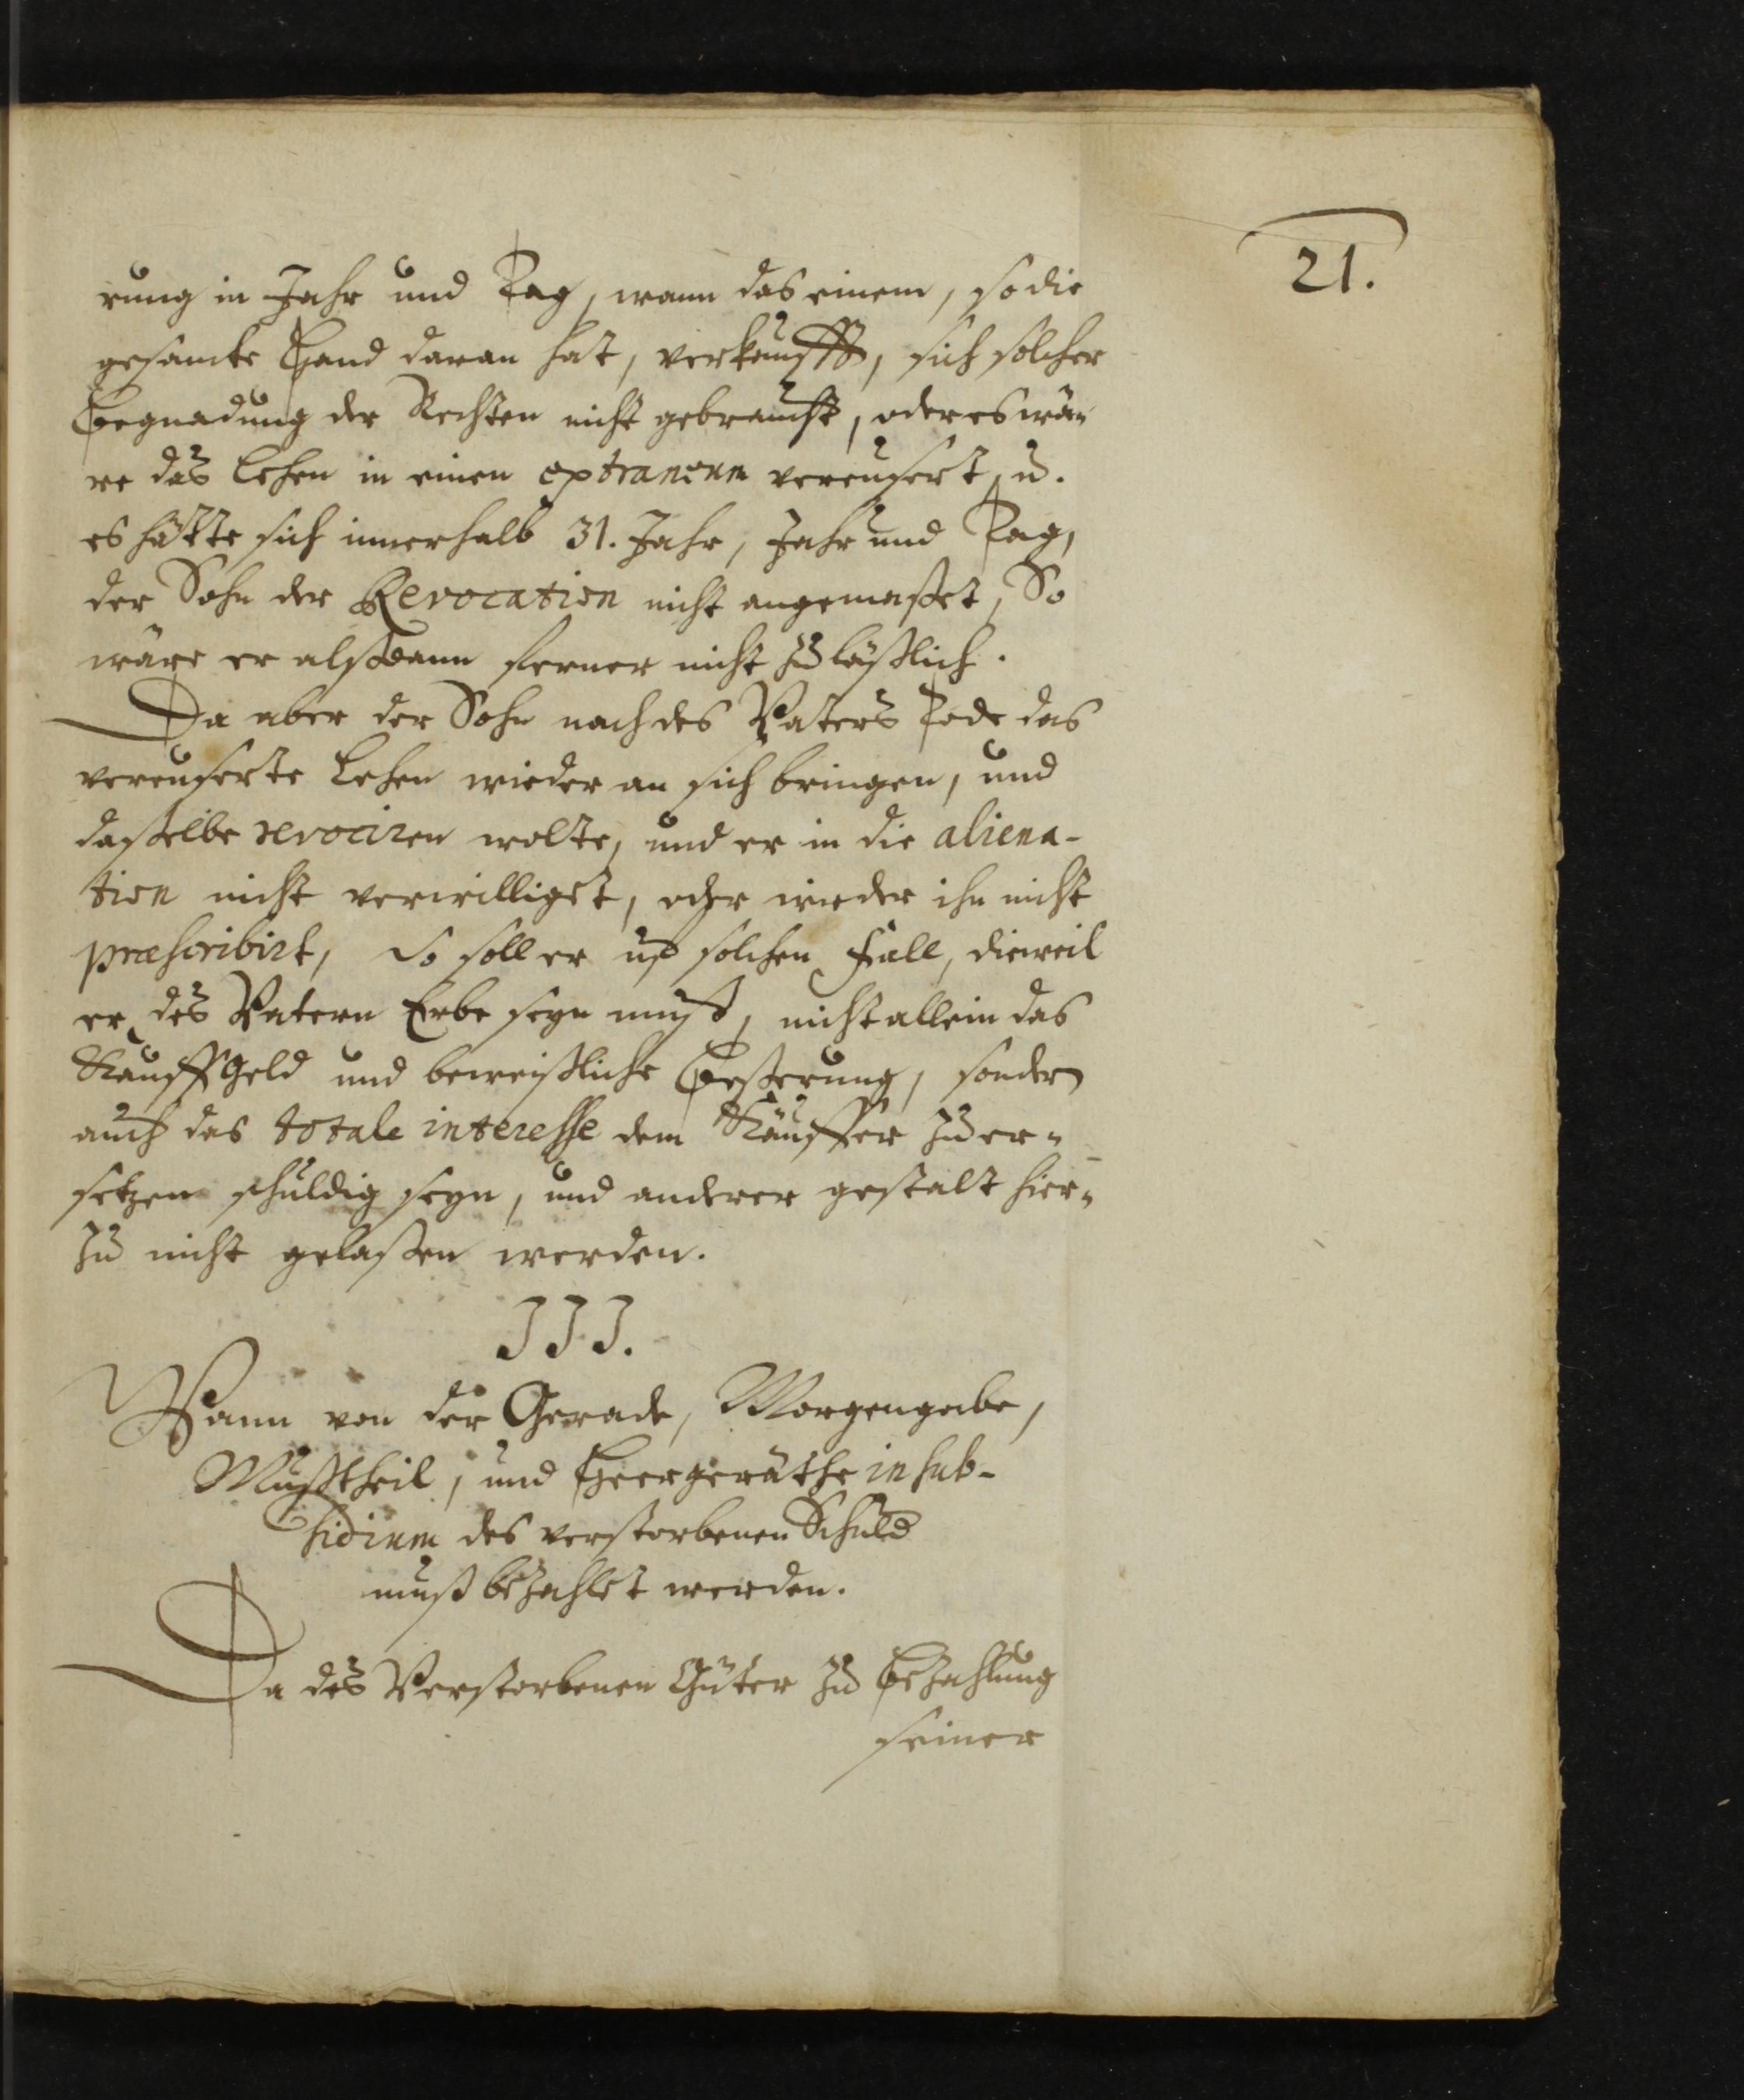 21.
rung in Jahr und Tag, wann das einem, so die
gesamte Hand daran hat, verkaufft, sich solcher
Begnadung der Rechten nicht gebraucht, oder es wä-
re das Lehen in einen extraneum vereusert, u.
es hätte sich innerhalb 31. Jahr, Jahr und Tag,
der Sohn der Revocation nicht angemasset, So
wäre er alßdann ferner nicht zuläßlich.
Da aber der Sohn nach des Vaters Tode das
vereuserte Lehen wieder an sich bringen, und
dasselbe revociren wolte, und er in die aliena-
tion nicht verwilliget, oder wieder ihn nicht
præscribirt, So soll er uf solchen Fall, dieweil
er des Vatern Erbe seyn muß, nicht allein das
Kauffgeld und beweißliche Besserung, sondern
auch das totale interesse dem Käuffer zu er-
setzen schuldig seyn, und anderer gestalt hier-
zu nicht gelassen werden.
III.
Wann von der Gerade, Morgengabe,
Mußtheil, und Heergeräthe in sub-
sidium des verstorbenen Schuld
muß bezahlet werden.
Da des Verstorbenen Güter zu Bezahlung
seiner